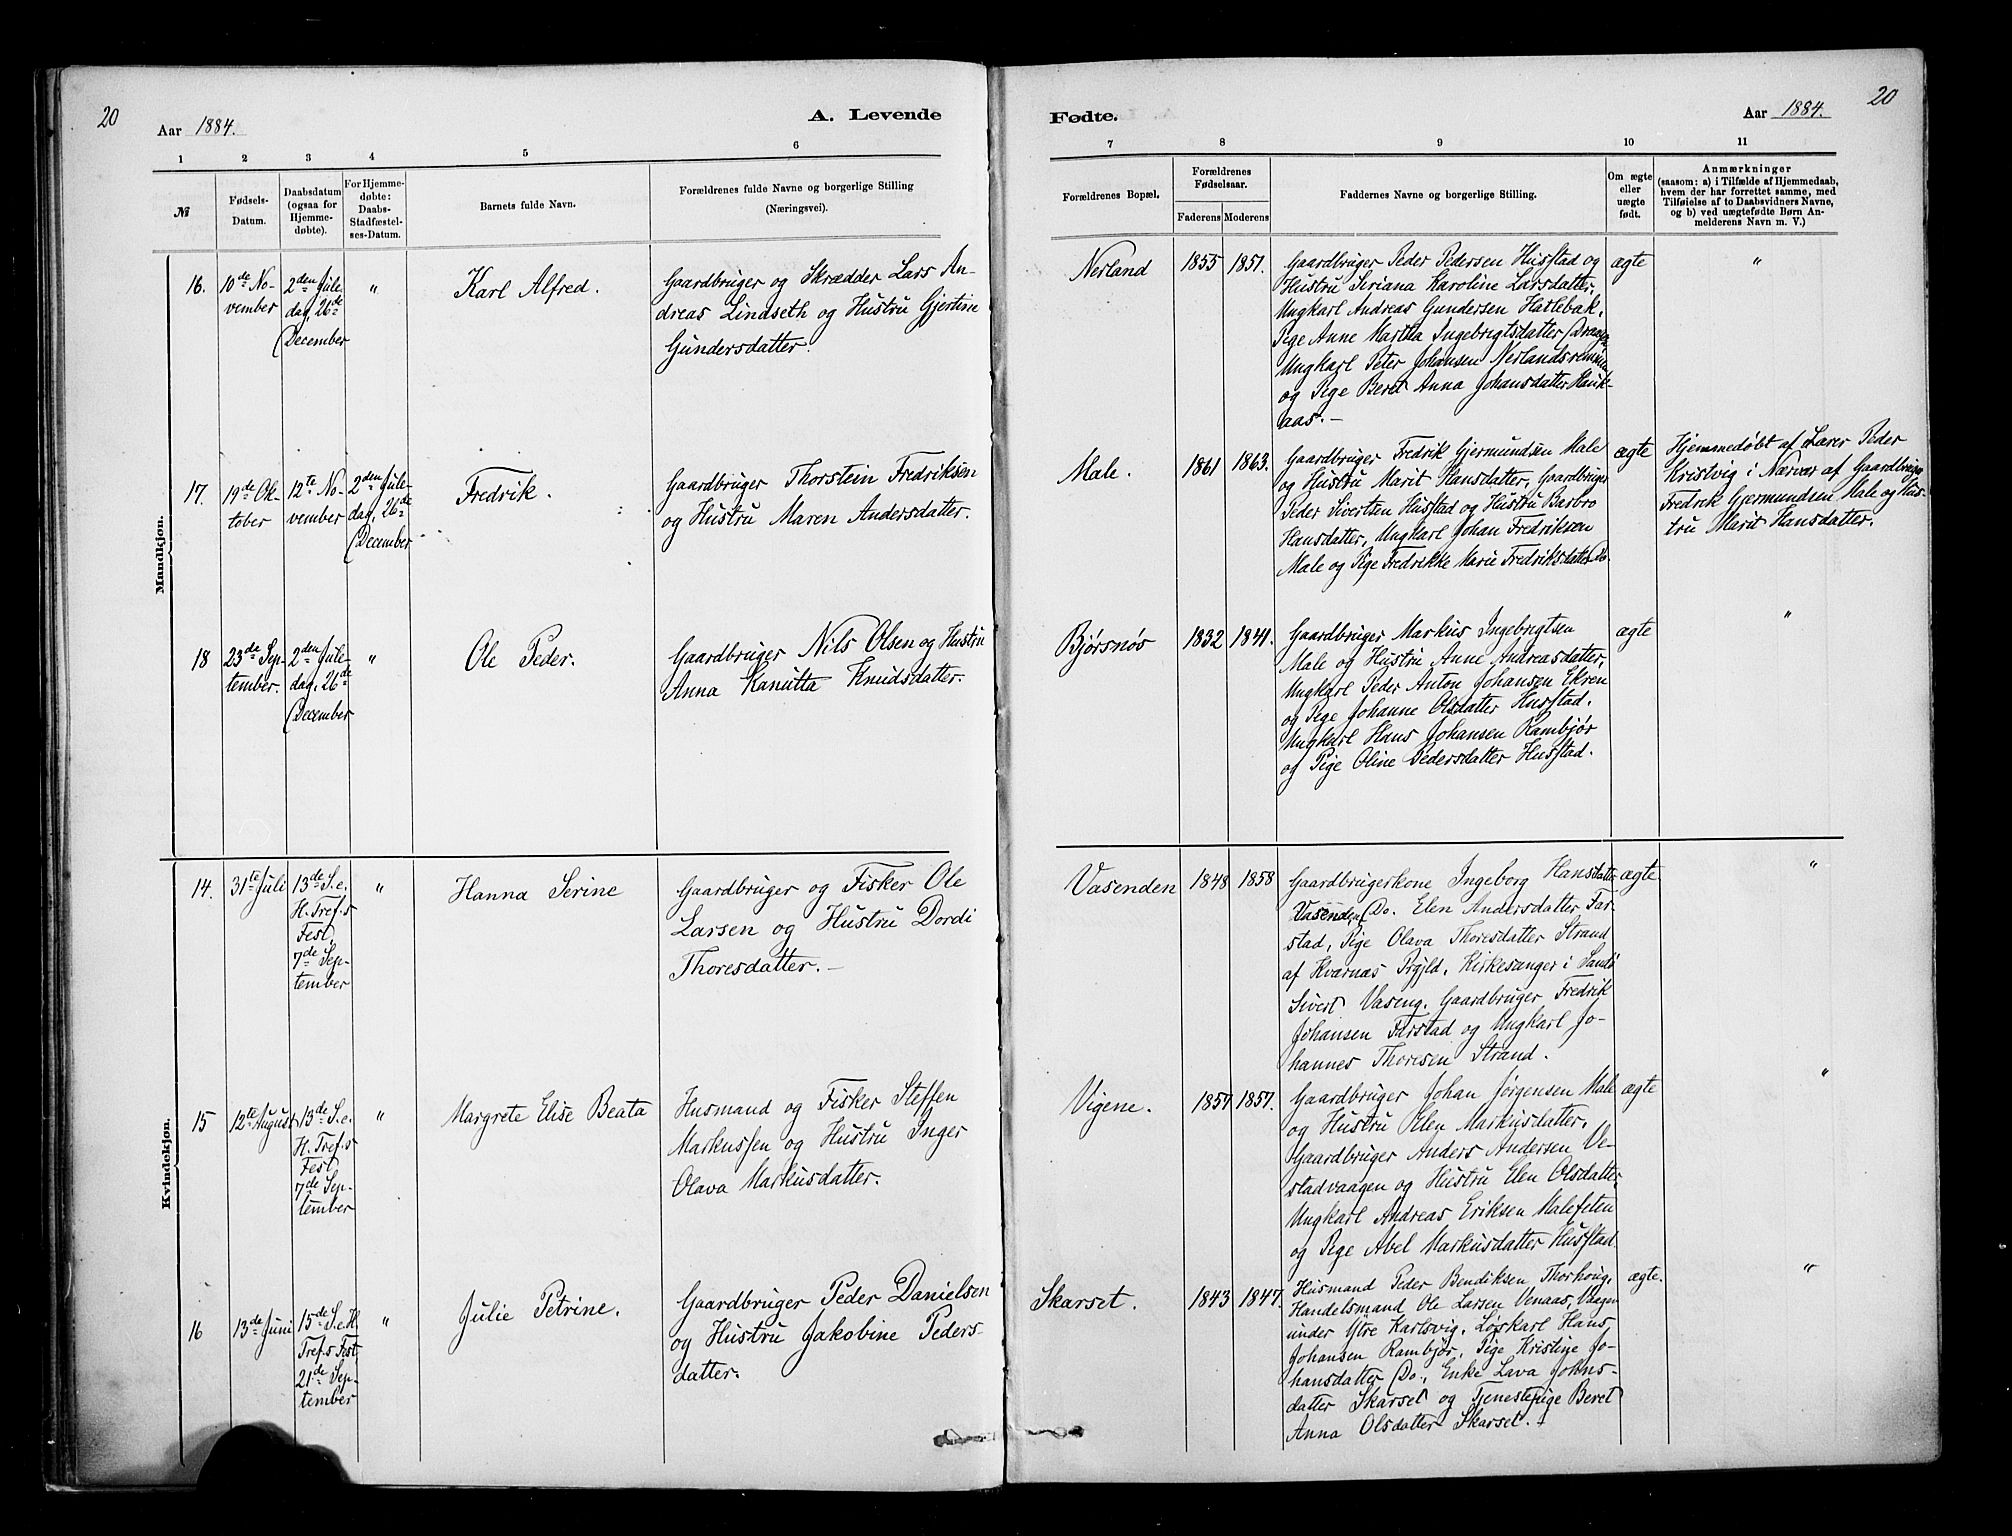 20
Aar 1884.
A. Levende
1 2 3 4 5 6
№
Fødsels-
Datum.
Daabsdatum
(ogsaa for
Hjemme-
døbte).
For Hjemme-
døbte:
Daabs-
Stadfæstel-
ses-Datum.
Barnets fulde Navn.
Forældrenes fulde Navne og borgerlige Stilling
(Næringsvei).
Mandkjøn.
16.
10de No-
vember
2den Jule-
dag, 26de
December
"
Karl Alfred.
Gaardbruger og Skrædder Lars An-
dreas Lindseth og Hustru Gjertine
Gundersdatter.
17.
19de Ok-
tober
12te No-
vember
2den Jule-
dag, 26de
December
Fredrik.
Gaardbruger Thorstein Fredriksen
og Hustru Maren Andersdatter.
18
23de Sep-
tember.
2den Jule-
dag, 26de
December
"
Ole Peder.
Gaardbruger Nils Olsen og Hustru
Anna Kanutta Knudsdatter.
Kvindekjøn.
14.
31te Juli
13de S. e.
H. Tref.s
Fest,
7de Sep-
tember
"
Hanna Serine
Gaardbruger og Fisker Ole
Larsen og Hustru Dordi
Thoresdatter. —
15
12te August
13de S. e.
H. Tref.s
Fest
7de Sep-
tember
"
Margrete Elise Beata
Husmand og Fisker Steffen
Markussen og Hustru Inger
Olava Markusdatter.
16
13de Juni
15de S. e. H.
Tref.s Fest,
21de Sep-
tember
"
Julie Petrine.
Gaardbruger Peder Danielsen
og Hustru Jakobine Peders-
datter.
Fødte.
Aar 1884.
20
7 8 9 10 11
Forældrenes Bopæl.
Forældrenes
Fødselsaar.
Faderens Moderens
Faddernes Navne og borgerlige Stilling.
Om ægte
eller
uægte
født.
Anmærkninger
(saasom: a) i Tilfælde af Hjemmedaab,
hvem der har forrettet samme, med
Tilføielse af to Daabsvidners Navne,
og b) ved uægtefødte Børn An-
melderens Navn m. V.)
Nerland
1855 1851.
Gaardbruger Peder Pedersen Husstad og
Hustru Seriana Karoline Larsdatter,
Ungkarl Andreas Gundersen Hatlebak,
Pige Anne Martha Ingebrigtsdatter
Ungkarl Peter Johansen
og Pige Beret Anna Johansdatter Hauk-
aas. —
ægte
"
Male.
1861 1863.
Gaardbruger Fredrik Gjermundsen Male
og Hustru Marit Hansdatter, Gaardbruger
Peder Sivertsen Hustad og Hustru Barbro
Hansdatter, Ungkarl Johan Fredriksen
Male og Pige Fredrikke Marie Fredriksdatter Do.
ægte
Hjemmedøbt af Lærer Peder
Kristvig i Nærvær af Gaardbruger
Fredrik Gjermundsen Male og Hus-
tru Marit Hansdatter.
Bjørsnøs
1832 1841.
Gaardbruger Markus Ingebrigtsen
Male og Hustru Anne Andreasdatter,
Ungkarl Peder Anton Johansen Ekren
og Pige Johanne Olsdatter Husstad.
Ungkarl Hans Johansen Rambjør
og Pige Oline Pedersdatter Husstad.
ægte
"
Vasenden
1848 1858
Gaardbrugerkone Ingeborg Hansdatter
Vasenden, Do. Elen Andersdatter Far-
stad, Pige Olava Thoresdatter Strand
af Kværnæs Prgjld., Kirkesanger i Sandø
Sivert Vaseng, Gaardbruger Fredrik
Johansen Farstad og Ungkarl Jo-
hannes Thoresen Strand.
ægte
"
Vigene.
1857 1857.
Gaardbruger Johan Jørgensen Male
og Hustru Elen Markusdatter,
Gaardbruger Anders Andersen Ve-
stadvaagen og Hustru Elen Olsdatter,
Ungkarl Andreas Eriksen Malefeten
og Pige Abel Markusdatter Husstad
ægte
"
Skarset.
1843 1847.
Husmand Peder Bendiksen Thorhoug,
Handelsmand Ole Larsen Venaas, Vaagen
under Ytre Karlsvig, Løskarl Hans
Johansen Rambjør, Pige Kristine Jo-
hansdatter Do., Enke Lava Johns-
datter Skarset og Tjenestepige Beret
Anna Olsdatter Skarset. —
ægte.
"